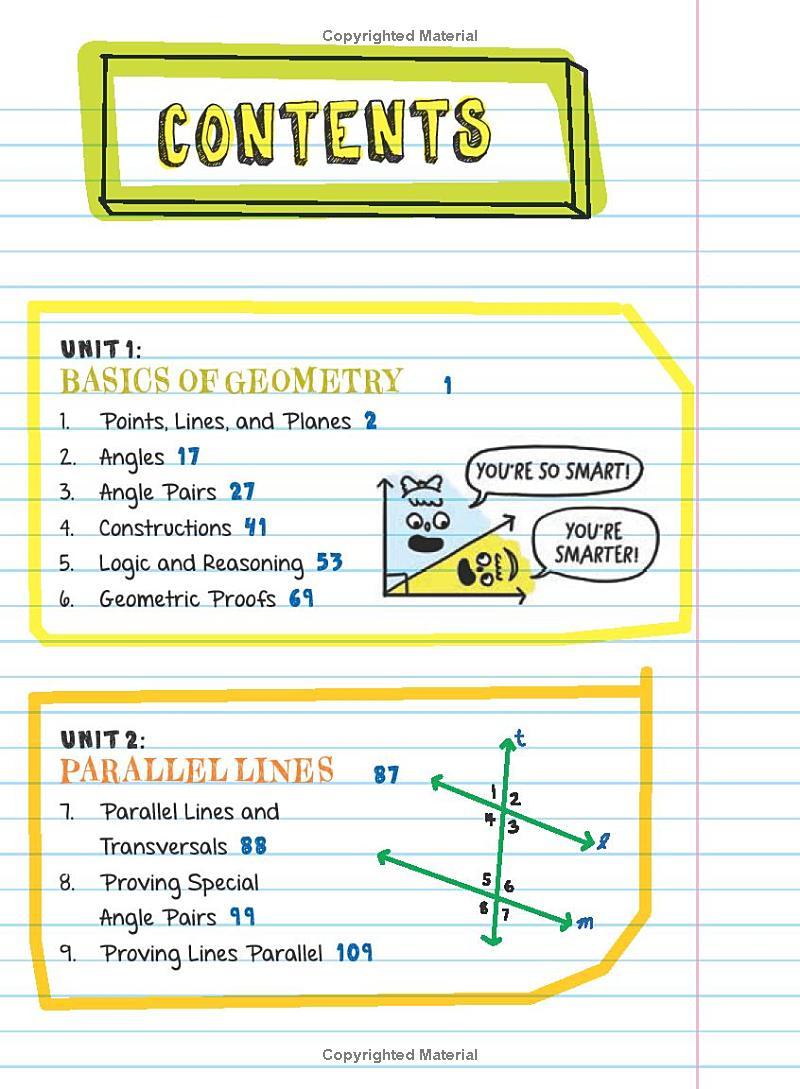 Copyrighted Material
CONTENTS
UNIT 1:
BASICS OF GEOMETRY 1
1. Points, Lines, and Planes 2
2. Angles 17
3. Angle Pairs 27
4. Constructions 41
5. Logic and Reasoning 53
6. Geometric Proofs 69
YOU'RE SO SMART!
YOU'RE
SMARTER!
UNIT 2:
PARALLEL LINES 87
7. Parallel Lines and
Transversals 88
8. Proving Special
Angle Pairs 99
9. Proving Lines Parallel 109
t
1 2
4 3
l
5 6
8 7
m
Copyrighted Material